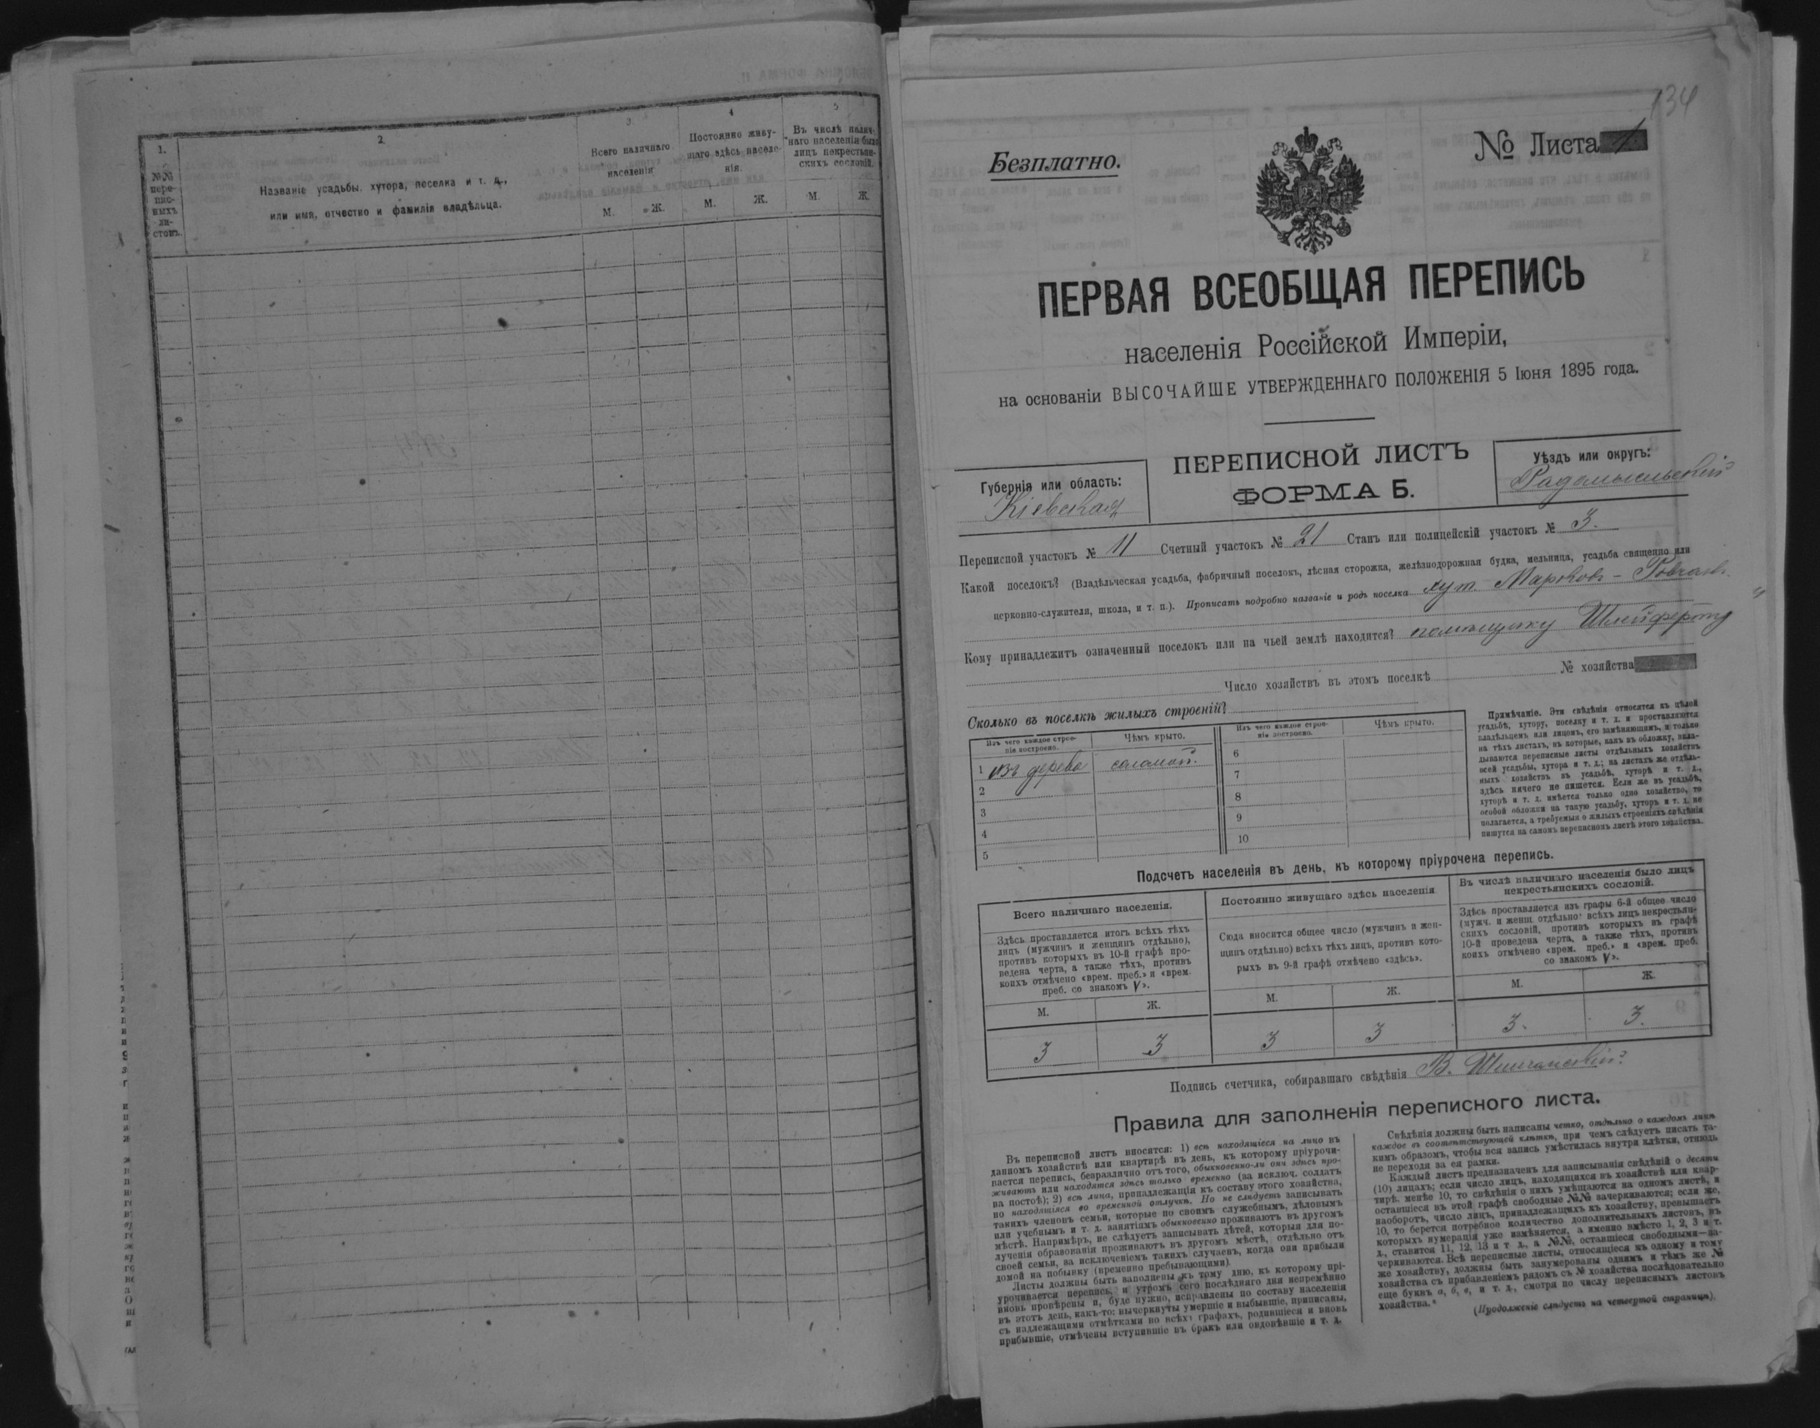 1.
№№ пере-
пис-
ныхъ
ли-
стовъ
2.
Названіе усадьбы, хутора, поселка и т. д.,
или имя, отчество и фамилія владѣльца.
3.
Всего наличнаго
населенія
М. Ж.
4
Постоянно живу-
щаго здѣсь населе-
нія.
М. Ж.
5
Въ числѣ налич-
наго населенія было
лицъ некрестьян-
скихъ сословій.
М. Ж.
134
Безплатно.
№ Листа
ПЕРВАЯ ВСЕОБЩАЯ ПЕРЕПИСЬ
населенія Россійской Имперіи,
на основаніи ВЫСОЧАЙШЕ УТВЕРЖДЕННАГО ПОЛОЖЕНІЯ 5 Іюня 1895 года.
Губернія или область:
Кіевская
ПЕРЕПИСНОЙ ЛИСТЪ
ФОРМА Б.
Уѣздъ или округъ:
Радомысльскій
Переписной участокъ № 11 Счетный участокъ № 21 Станъ или полицейскій участокъ № 3.
Какой поселокъ? (Владѣльческая усадьба, фабричный поселокъ, лѣсная сторожка, желѣзнодорожная будка, мельница, усадьба священно или
церковно-служителя, школа, и т. п.). Прописать подробно названіе и родъ поселка хут.
Кому принадлежитъ означенный поселокъ или на чьей землѣ находится? помѣщику
Число хозяйствъ въ этомъ поселкѣ № хозяйства
Сколько въ поселкѣ жилыхъ строеній?
Изъ чего каждое строе-
ніе построено. Чѣмъ крыто. Изъ чего каждое строе-
ніе построено. Чѣмъ крыто.
1 изъ дерева солом. 6
2 7
3 8
4 9
5 10
Примѣчаніе. Эти свѣдѣнія относятся къ цѣлой
усадьбѣ, хутору, поселку и т. д. и проставляются
владѣльцемъ или лицомъ, его замѣняющимъ, и только
на тѣхъ листахъ, въ которые, какъ въ обложку, вкла-
дываются переписные листы отдѣльныхъ хозяйствъ
всей усадьбы, хутора и т. д.; на листахъ же отдѣль-
ныхъ хозяйствъ въ усадьбѣ, хуторѣ и т. д.,
здѣсь ничего не пишется. Если же въ усадьбѣ,
хуторѣ и т. д. имѣется только одно хозяйство, то
особой обложки на такую усадьбу, хуторъ и т. д. не
полагается, а требуемыя о жилыхъ строеніяхъ свѣдѣнія
пишутся на самомъ переписномъ листѣ этого хозяйства.
Подсчетъ населенія въ день, къ которому пріурочена перепись.
Всего наличнаго населенія.
Здѣсь проставляется итогъ всѣхъ тѣхъ
лицъ (мужчинъ и женщинъ отдѣльно),
противъ которыхъ въ 10-й графѣ про-
ведена черта, а также тѣхъ, противъ
коихъ отмѣчено «врем. преб.» и «врем.
преб. со знакомъ V».
М. Ж.
3 3
Постоянно живущаго здѣсь населенія
Сюда вносится общее число (мужчинъ и жен-
щинъ отдѣльно) всѣхъ тѣхъ лицъ, противъ кото-
рыхъ въ 9-й графѣ отмѣчено «здѣсь».
М. Ж.
3 3
Въ числѣ наличнаго населенія было лицъ
некрестьянскихъ сословій.
Здѣсь проставляется изъ графы 6-й общее число
(мужч. и женщ. отдѣльно) всѣхъ лицъ некрестьян-
скихъ сословій, противъ которыхъ въ графѣ
10-й проведена черта, а также тѣхъ, противъ
коихъ отмѣчено «врем. преб.» и «врем. преб.
со знакомъ V».
М. Ж.
3. 3.
Подпись счетчика, собиравшаго свѣдѣнія В.
Правила для заполненія переписного листа.
Въ переписной листъ вносятся: 1) всѣ находящіеся на лицо въ
данномъ хозяйствѣ или квартирѣ въ день, къ которому пріурочи-
вается перепись, безразлично отъ того, обыкновенно-ли они здѣсь про-
живаютъ или находятся здѣсь только временно (за исключ. солдатъ
на постоѣ); 2) всѣ лица, принадлежащія къ составу этого хозяйства,
но находящіяся во временной отлучкѣ. Но не слѣдуетъ записывать
такихъ членовъ семьи, которые по своимъ служебнымъ, дѣловымъ
или учебнымъ и т. д. занятіямъ обыкновенно проживаютъ въ другомъ
мѣстѣ. Напримѣръ, не слѣдуетъ записывать дѣтей, которыя для по-
лученія образованія проживаютъ въ другомъ мѣстѣ, отдѣльно отъ
своей семьи, за исключеніемъ такихъ случаевъ, когда они прибыли
домой на побывку (временно пребывающими).
Листы должны быть заполнены къ тому дню, къ которому прі-
урочивается перепись, и утромъ сего послѣдняго дня непремѣнно
вновь провѣрены и, буде нужно, исправлены по составу населенія
въ этотъ день, какъ-то: вычеркнуты умершіе и выбывшіе, приписаны,
съ надлежащими отмѣтками во всѣхъ графахъ, родившіеся и вновь
прибывшіе, отмѣчены вступившіе въ бракъ или овдовѣвшіе и т. д.
Свѣдѣнія должны быть написаны четко, отдѣльно о каждомъ лицѣ
каждое въ соотвѣтствующей клѣткѣ, при чемъ слѣдуетъ писать та-
кимъ образомъ, чтобы вся запись умѣстилась внутри клѣтки, отнюдь
не переходя за ея рамки.
Каждый листъ предназначенъ для записыванія свѣдѣній о десяти
(10) лицахъ; если число лицъ, находящихся въ хозяйствѣ или квар-
тирѣ, менѣе 10, то свѣдѣнія о нихъ умѣщаются на одномъ листѣ, и
оставшіеся въ этой графѣ свободные №№ зачеркиваются; если же,
наоборотъ, число лицъ, принадлежащихъ къ хозяйству, превышаетъ
10, то берется потребное количество дополнительныхъ листовъ, въ
которыхъ нумерація уже измѣняется, а именно вмѣсто 1, 2, 3 и т.
д., ставится 11, 12, 13 и т д., а №№, оставшіеся свободными—за-
черкиваются. Всѣ переписные листы, относящіеся къ одному и тому
же хозяйству, должны быть занумерованы однимъ и тѣмъ же №
хозяйства съ прибавленіемъ рядомъ съ № хозяйства послѣдовательно
еще буквъ а, б, в, и т. д., смотря по числу переписныхъ листовъ
хозяйства.
(Продолженіе слѣдуетъ на четвертой страницѣ).